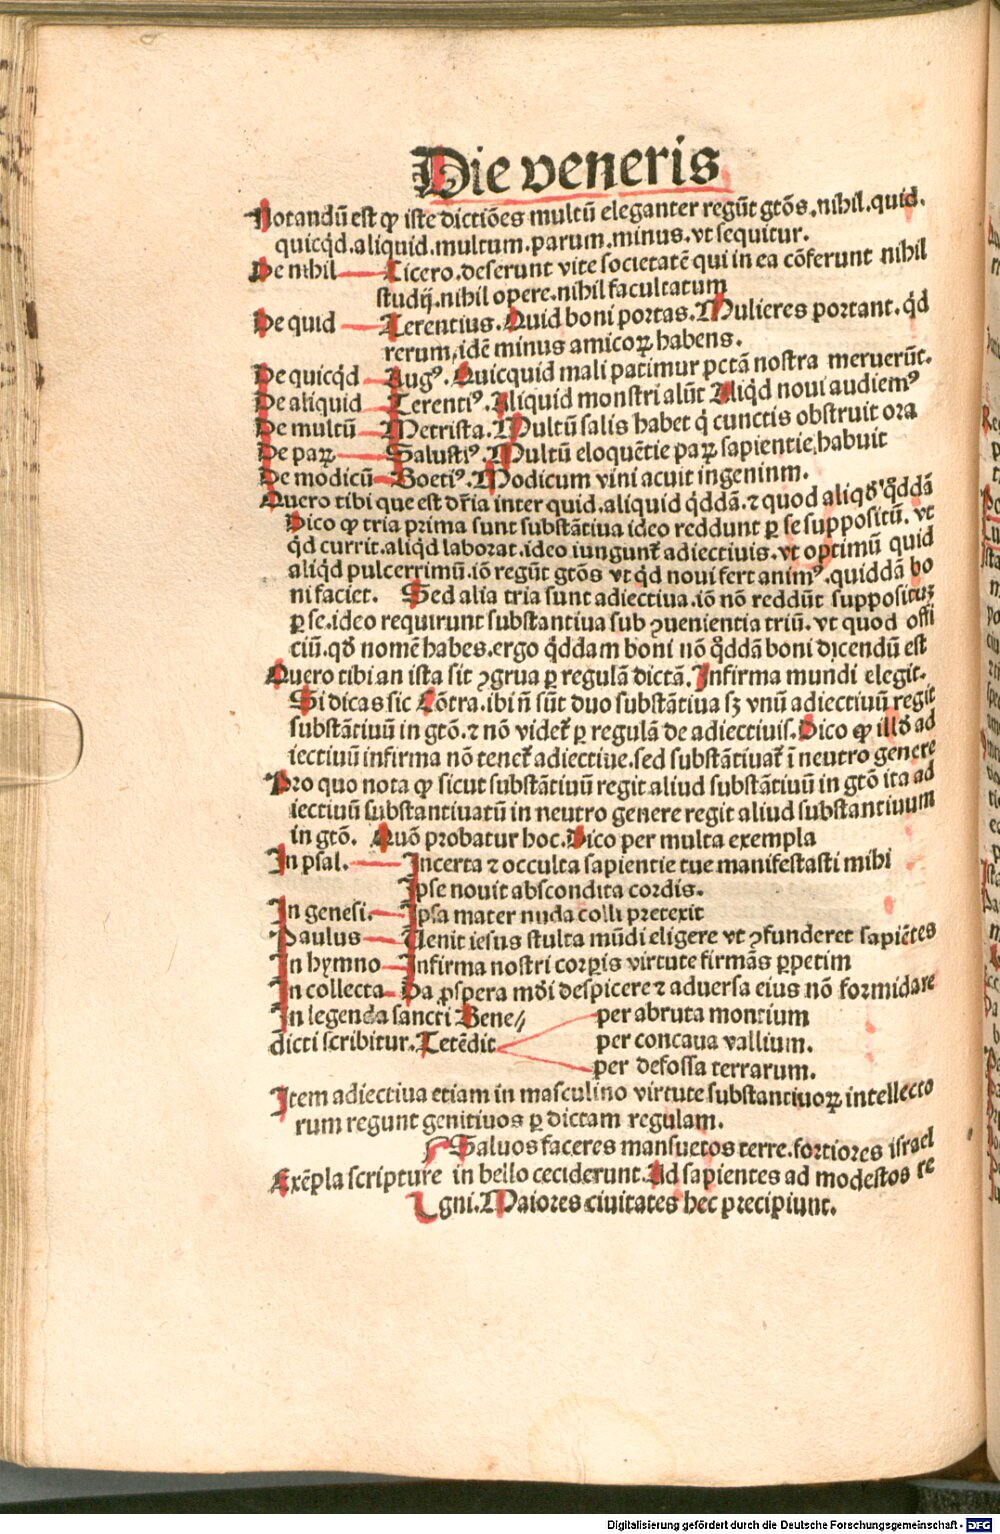 Die veneris
Notandū est ꝙ iste dictiōes multū eleganter regūt gtōs.nihil.quid.
quicqd̓.aliquid.multum.parum.minus.vt sequitur.
De nihil Cicero.deserunt vite societatē qui in ea cōferunt nihil
studij.nihil opere.nihil facultatum
De quid Terentius. Quid boni portas. Mulieres portant. qd̓
rerum, idē minus amicoꝝ habens.
De quicqd̓ Augꝰ. Quicquid mali patimur pctā nostra meruerūt.
De aliquid Terentiꝰ. Aliquid monstri alūt Aliqd̓ noui audiemꝰ
De multū Metrista. Multū salis habet q̓ cunctis obstruit ora
De paꝝ Salustiꝰ. Multū eloquētie paꝝ sapientie, habuit
De modicū Boetiꝰ. Modicum vini acuit ingenium.
Quero tibi que est dr̄ia inter quid.aliquid qd̓dā. ⁊ quod aliqd̓ qd̓dā
Dico ꝙ tria prima sunt substātiua ideo reddunt ꝑ se suppositū. vt
qd̓ currit.aliqd̓ laborat.ideo iungunt̄ adiectiuis. vt optimū quid
aliqd̓ pulcerrimū.iō regūt gtōs vt qd̓ noui fert animꝰ.quiddā bo
ni faciet. Sed alia tria sunt adiectiua.iō nō reddūt suppositūꝫ
ꝑ se.ideo requirunt substantiua sub ꝯuenientia triū. vt quod offi
ciū.qd̓ nomē habes.ergo qd̓dam boni nō qd̓dā boni dicendū est
Quero tibi an ista sit ꝯgrua ꝑ regulā dictā. Infirma mundi elegit.
Si dicas sic Cōtra.ibi n̄ sūt duo substātiua sꝫ vnū adiectiuū regit
substātiuū in gtō.⁊ nō videt̄ ꝑ regulā de adiectiuis. Dico ꝙ illd̓ ad
iectiuū infirma nō tenet̄ adiectiue.sed substātiuat̄ ī neutro genere
Pro quo nota ꝙ sicut substātiuū regit aliud substātiuū in gtō ita ad
iectiuū substantiuatū in neutro genere regit aliud substantiuum
in gtō. Quō probatur hoc. Dico per multa exempla
In psal. Incerta ⁊ occulta sapientie tue manifestasti mihi
Ipse nouit abscondita cordis.
In genesi. Ipsa mater nuda colli pretexit
Paulus Uenit iesus stulta mūdi eligere vt ꝯfunderet sapiētes
In hymno Infirma nostri corꝑis virtute firmās ꝑpetim
In collecta Da ꝓspera mōi despicere ⁊ aduersa eius nō formidare
In legenda sancti Bene⸗ per abruta montium
dicti scribitur. Tetēdit per concaua vallium.
per defossa terrarum.
Item adiectiua etiam in masculino virtute substantiuoꝝ intellecto
rum regunt genitiuos ꝑ dictam regulam.
Saluos faceres mansuetos terre.fortiores israel
Exēpla scripture in bello ceciderunt. Ad sapientes ad modestos re
gni. Maiores ciuitates hec precipiunt.
Digitalisierung gefördert durch die Deutsche Forschungsgemeinschaft - DFG